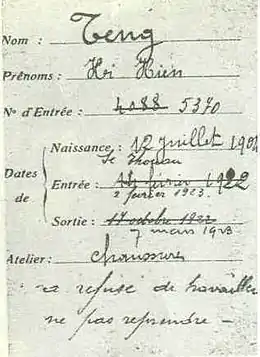 Nom : Teng
Prénoms : Hi Hien
N° d'Entrée : 4088 5370
Naissance : 12 Juillet 190
Dates de
Entrée : 14 février 1922
2 février 1923
Sortie : 17 octobre 1922
7 mars 1923
Atelier : chaussures
a refusé de travailler
ne pas reprendre —